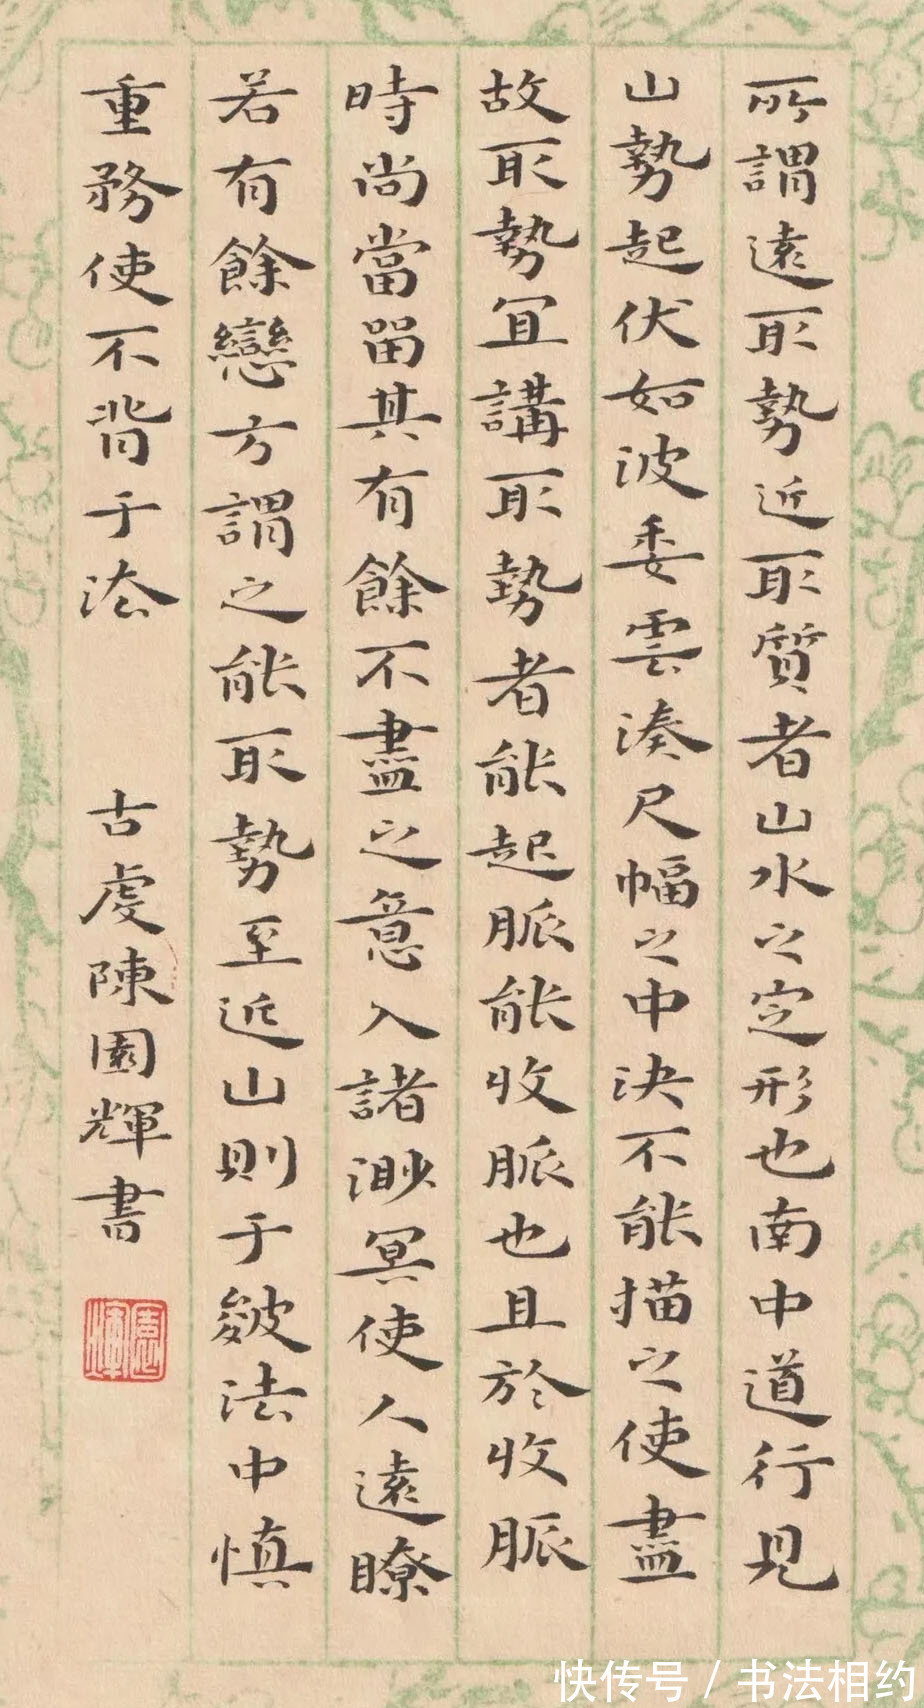 所謂遠取勢近取質者山水之定形也南中道行見
山勢起伏如波委雲湊尺幅之中決不能描之使盡
故取勢宜講取勢者能起脈能收脈也且於收脈
時尚當留其有餘不盡之意入諸渺冥使人遠瞭
若有餘戀方謂之能取勢至近山則于皴法中慎
重務使不背于法
古虔陳園輝書
園輝
快传号 / 书法相约